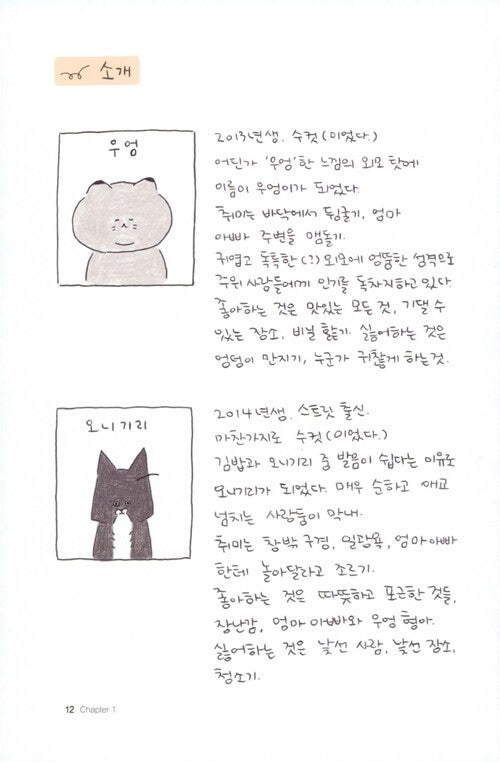 소개
우엉
2013년생. 수컷(이었다.)
어딘가 '우엉'한 느낌의 외모 탓에
이름이 우엉이가 되었다.
취미는 바닥에서 뒹굴기, 엄마
아빠 주변을 맴돌기.
귀엽고 독특한(?) 외모에 엉뚱한 성격으로
주위 사람들에게 인기를 독차지하고 있다.
좋아하는 것은 맛있는 모든 것, 기댈 수
있는 장소, 비닐 핥기. 싫어하는 것은
엉덩이 만지기, 누군가 귀찮게 하는 것.
오니기리
2014년생. 스트릿 출신.
마찬가지로 수컷(이었다.)
김밥과 오니기리 중 발음이 쉽다는 이유로
오니기리가 되었다. 매우 순하고 애교
넘치는 사랑둥이 막내.
취미는 창밖 구경, 일광욕, 엄마아빠
한테 놀아달라고 조르기.
좋아하는 것은 따뜻하고 포근한 것들,
장난감, 엄마 아빠와 우엉 형아.
싫어하는 것은 낯선 사람, 낯선 장소,
청소기.
12 Chapter 1